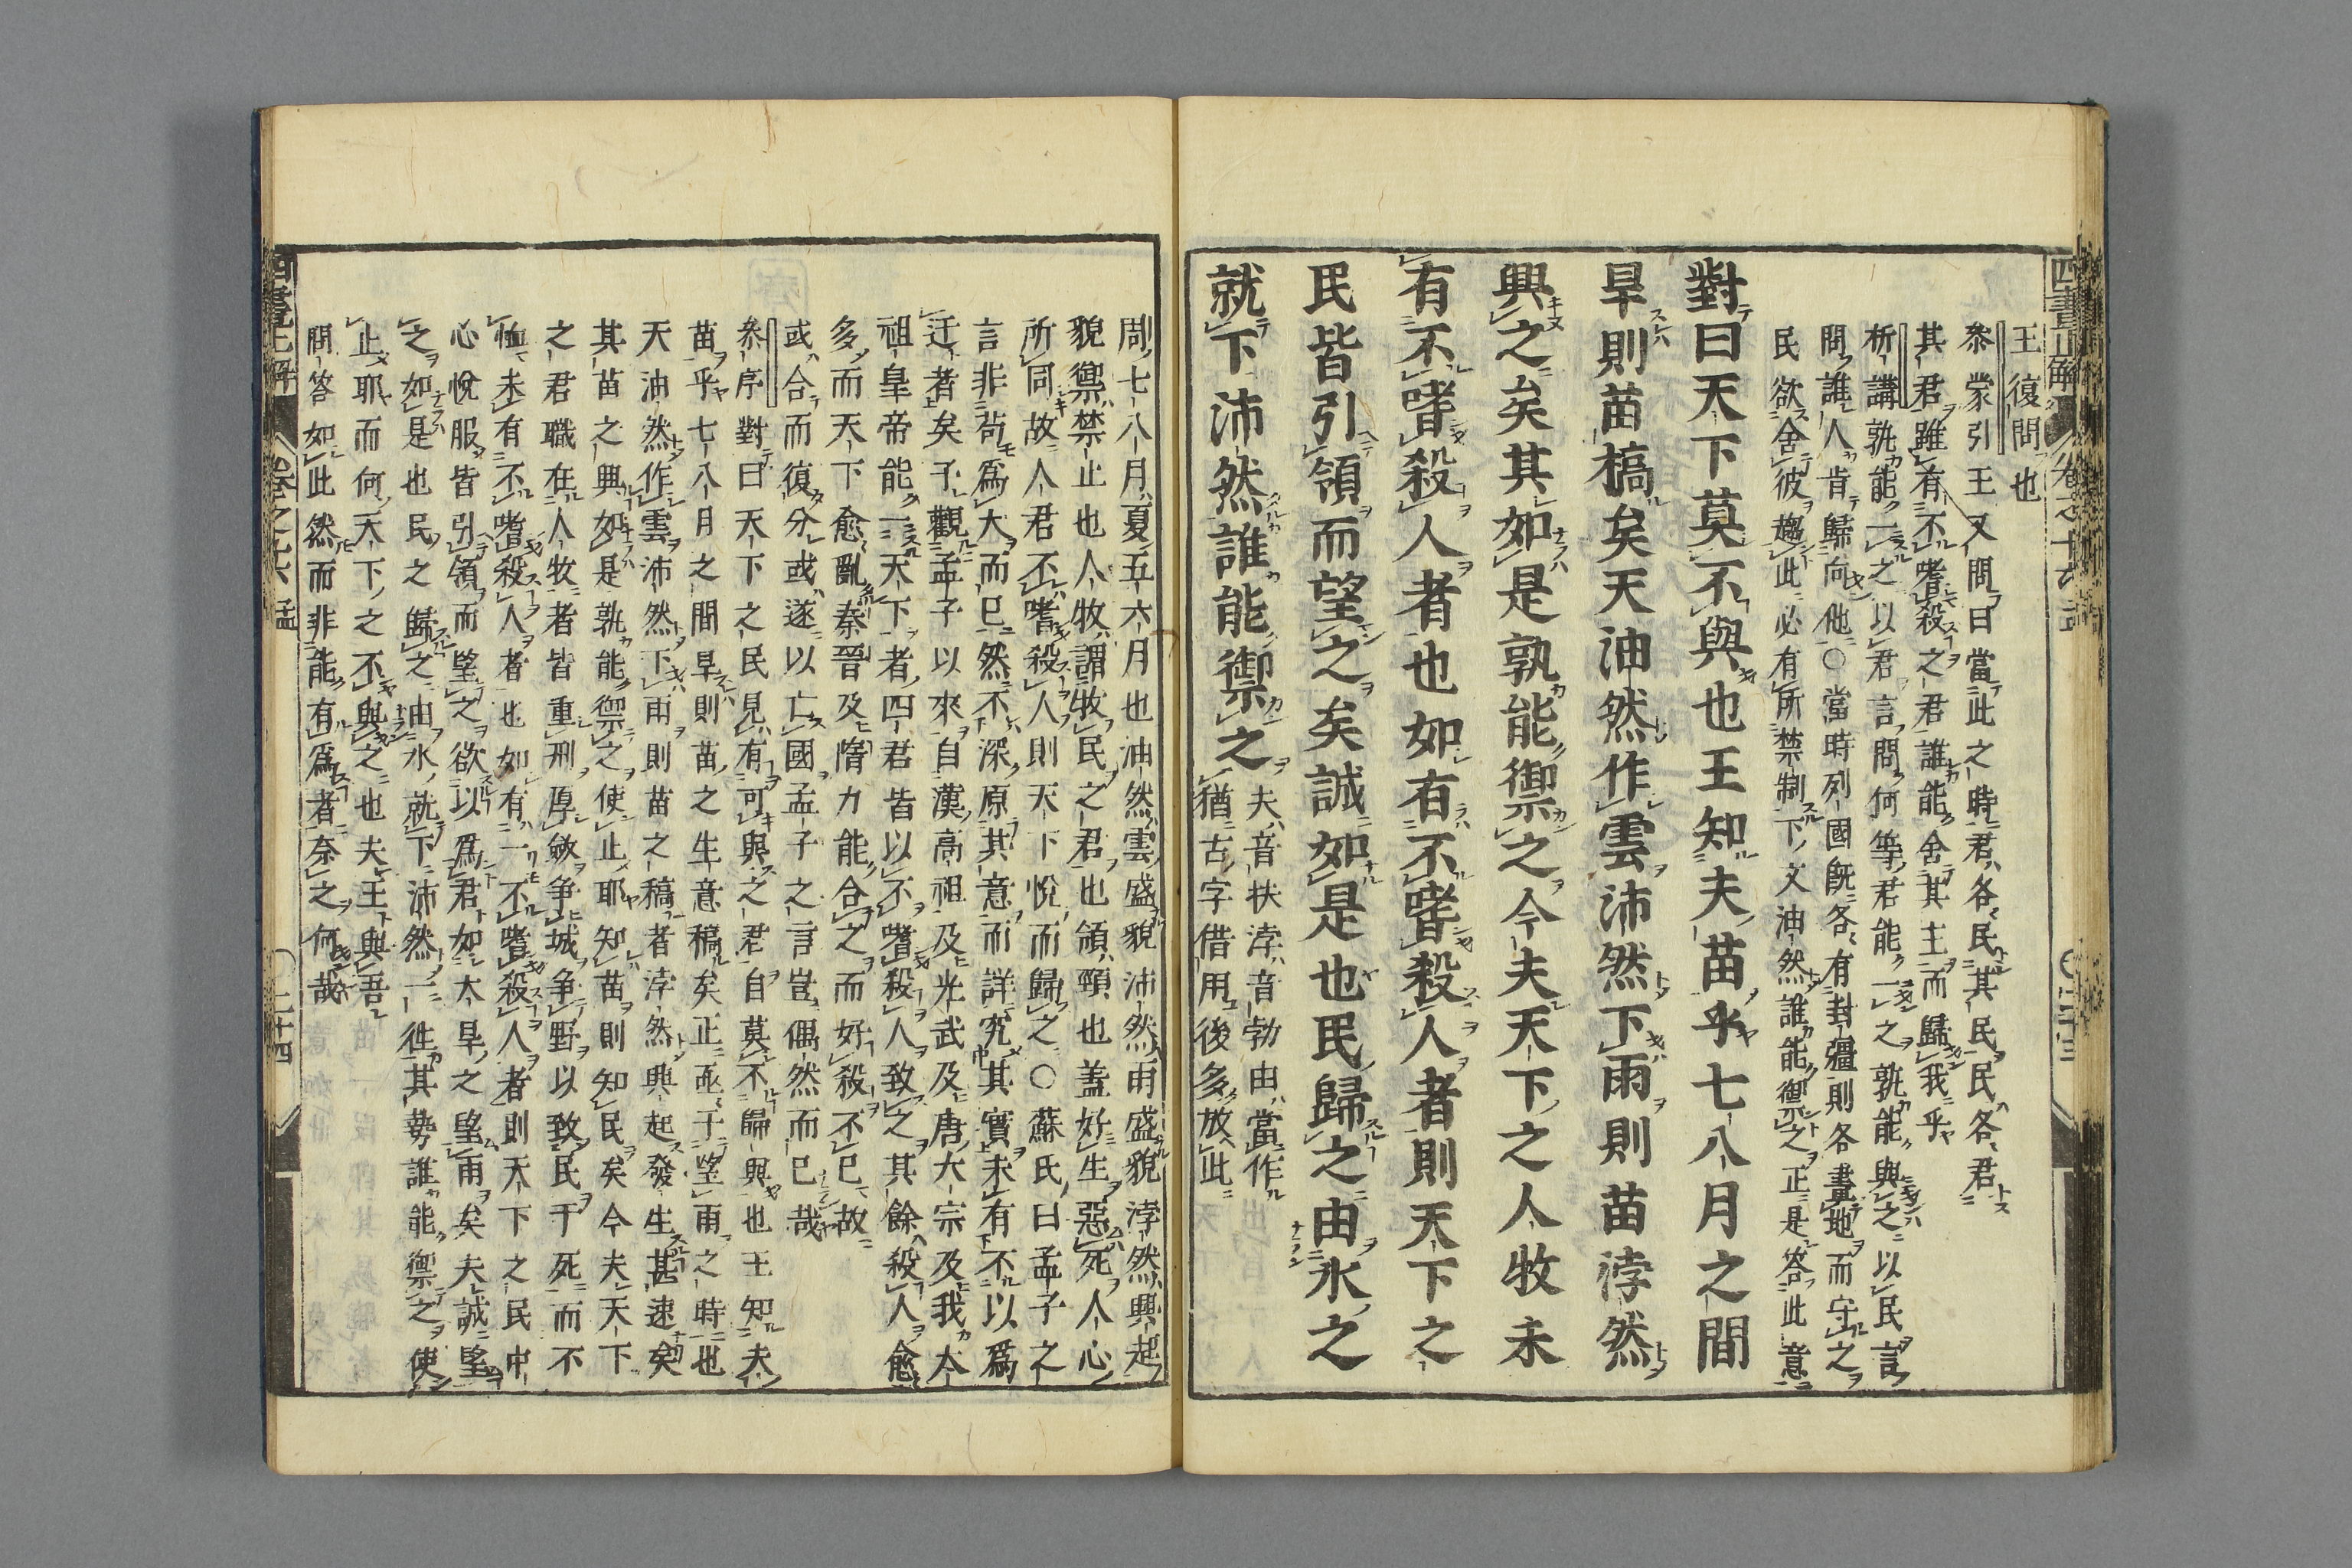 王復問也
叅蒙引王又問曰當此之時君各民其民民各君
其君雖有不嗜殺之君誰能舍其主而歸我乎
析講孰能一之以君言問何等君能一之孰能與之以民言
問誰人肯歸向他○當時列國既各有封疆則各畫地而守之
民欲舍彼趨此必有所禁制下文油然誰能禦之正是答此意
對曰天下莫不與也王知夫苗乎七八月之間
旱則苗槁矣天油然作雲沛然下雨則苗浡然
興之矣其如是孰能禦之今夫天下之人牧未
有不嗜殺人者也如有不嗜殺人者則天下之
民皆引領而望之矣誠如是也民歸之由水之
就下沛然誰能禦之
夫音扶浡音勃由當作
猶古字借用後多放此
周七八月夏五六月也油然雲盛貌沛然雨盛貌浡然興起
貌禦禁止也人牧謂牧民之君也領頸也蓋好生惡死人心
所同故人君不嗜殺人則天下悅而歸之○蘇氏曰孟子之
言非苟爲大而已然不深原其意而詳究其實未有不以爲
迂者矣予觀孟子以來自漢高祖及光武及唐太宗及我太
祖皇帝能一天下者四君皆以不嗜殺人致之其餘殺人愈
多而天下愈亂秦晉及隋力能合之而好殺不已故
或合而復分或遂以亡國孟子之言豈偶然而已哉
叅序對曰天下之民見有可與之君自莫不歸與也王知夫
苗乎七八月之間旱則苗之生意槁矣正亟于望雨之時也
天油然作雲沛然下雨則苗之槁者浡然興起發生甚速矣
其苗之興如是孰能禦之使止耶知苗則知民矣今夫天下
之君職在人牧者皆重刑厚斂爭城爭野以致民于死而不
恤未有不嗜殺人者也如有一不嗜殺人者則天下之民中
心悅服皆引領而望之欲以爲君如大旱之望雨矣夫誠望
之如是也民之歸之由水就下沛然一徃其勢誰能禦之使
止耶而何天下之不與之也夫王與吾
問答如此然而非能有爲者奈之何哉
四書正解
卷之十六 孟
二十四